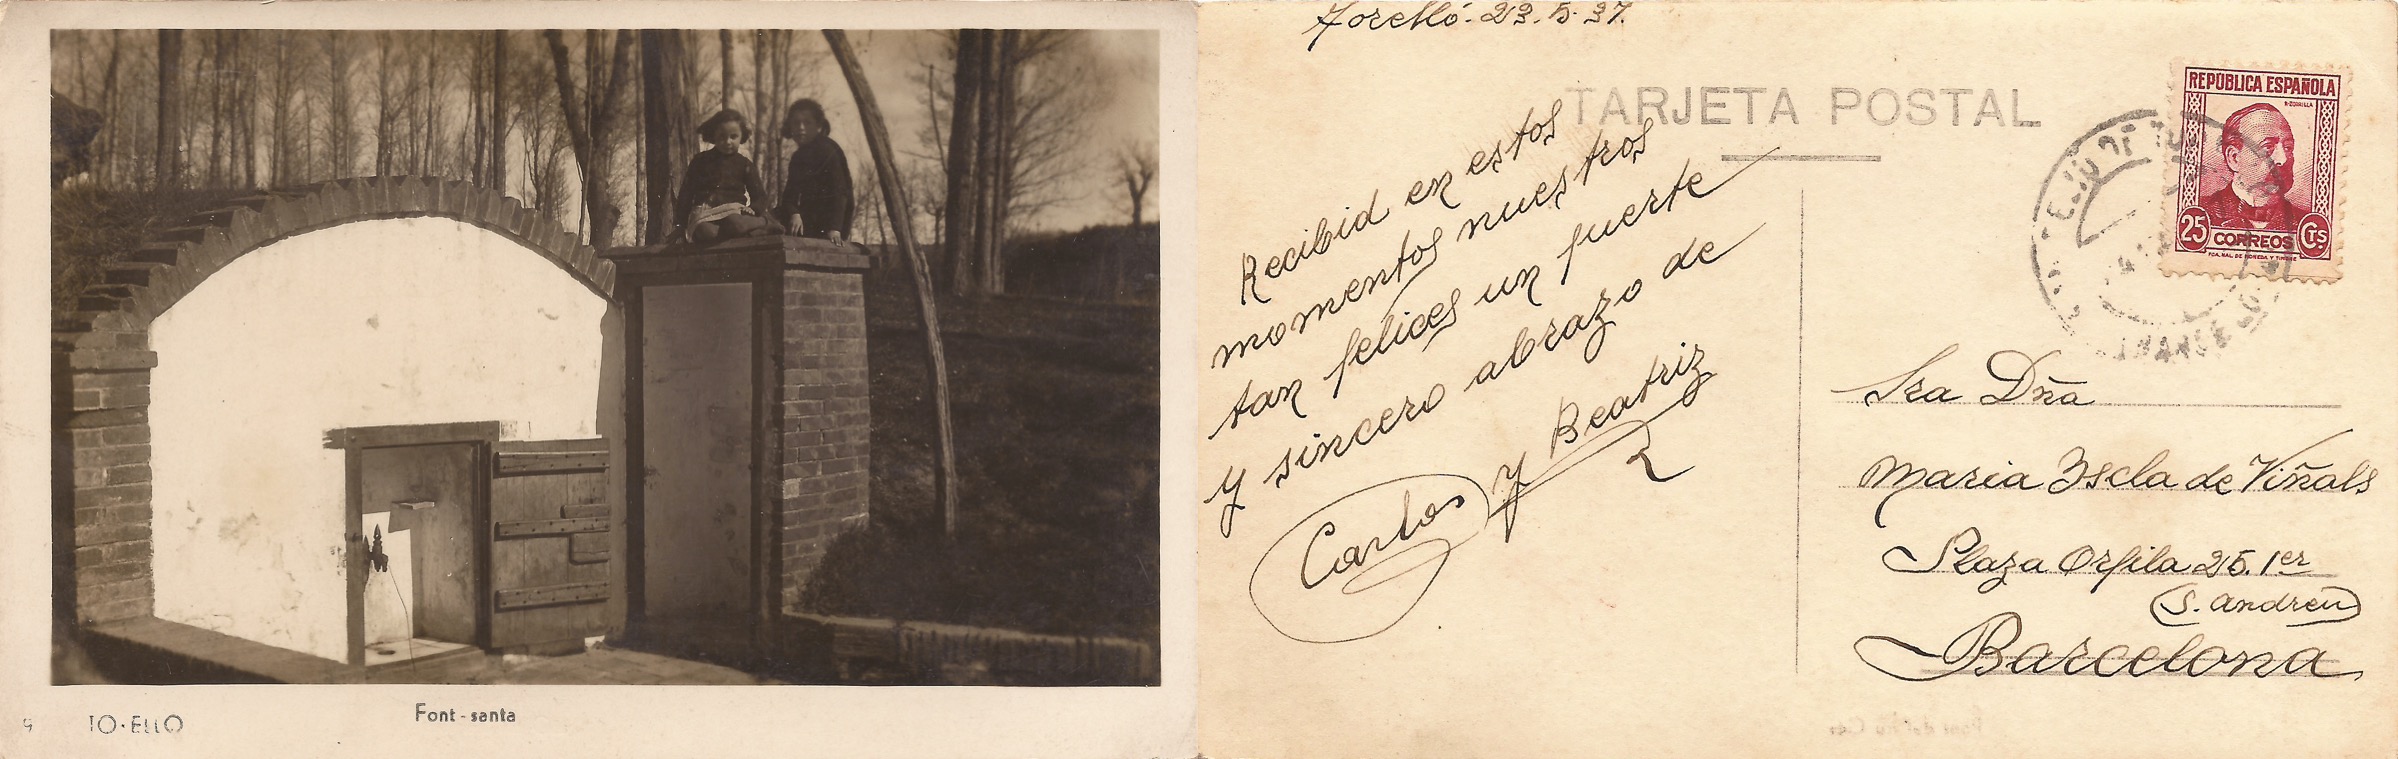 TO·ELLO
Font-santa
Torelló. 23.5.37.
TARJETA POSTAL
Recibid en estos
momentos nuestros
tan felices un fuerte
y sincero abrazo de
Carlos y Beatriz
REPÚBLICA ESPAÑOLA
R. ZORRILLA
25 CORREOS CTS.
FCA. NAL. DE MONEDA Y TIMBRE
Sra Dña
Maria Iscla de Viñals
Plaza Orfila 25. 1er
(S. Andreu)
Barcelona